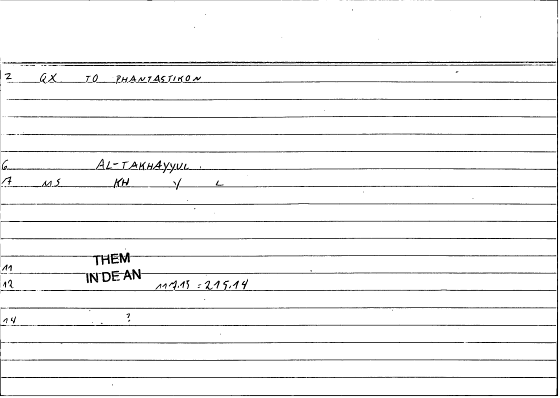 2 QX TO PHANTASTIKON
6 AL-TAKHAYYUL.
7 MS KH Y L
11 THEM
12 IN DE AN 117.15 = 215.14
14 ?